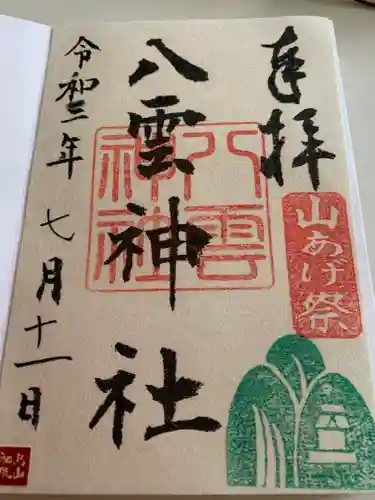 奉拝
八雲神社
令和三年
七月十一日
八雲
神社
山あげ祭